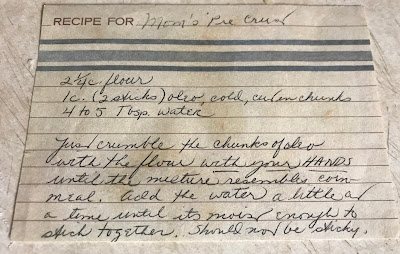 RECIPE FOR Mom's Pie Crust
2 1/4 c. flour
1 c. (2 sticks) oleo, cold, cut in chunks
4 to 5 Tbsp. water
Just crumble the chunks of oleo
with the flour with your HANDS
until the mixture resembles corn
meal. Add the water a little at
a time until its moist enough to
stick together. Should not be sticky.